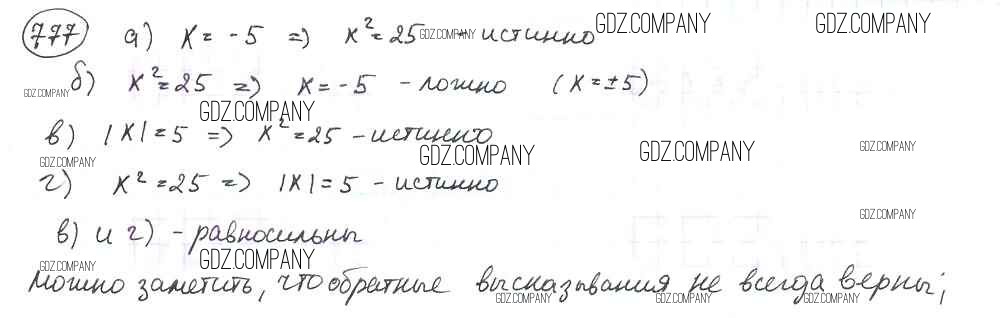 777 а) x = -5 => x² = 25 - истинно GDZ.COMPANY GDZ.COMPANY GDZ.COMPANY
б) x² = 25 => x = -5 - ложно (x = ±5)
GDZ.COMPANY
GDZ.COMPANY
в) |x| = 5 => x² = 25 - истинно
GDZ.COMPANY GDZ.COMPANY GDZ.COMPANY
GDZ.COMPANY
г) x² = 25 => |x| = 5 - истинно
GDZ.COMPANY
в) и г) - равносильны
GDZ.COMPANY
GDZ.COMPANY
Можно заметить, что обратные высказывания не всегда верны;
GDZ.COMPANY GDZ.COMPANY GDZ.COMPANY